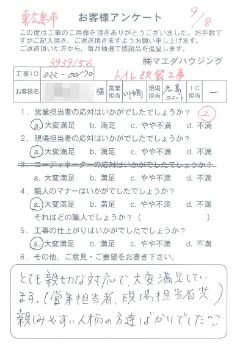 東広島市
お客様アンケート
9/8
この度は工事のご用命を頂きありがとうございました。お手数で
すがご記入頂き、ご返送頂きますようお願い申し上げます。
ご返送頂いた方から、毎月抽選で感謝品を進呈します。
㈱マエダハウジング
3939156
工事ID 022-00170 トイレ改装工事
お客様名 様 営業担当 現場担当 IC
1. 営業担当者の応対はいかがでしたでしょうか? ②
a. 大変満足 b. 満足 c. やや不満 d. 不満
2. 現場担当者の応対はいかがでしたでしょうか?
a. 大変満足 b. 満足 c. やや不満 d. 不満
3. コーディネーターの応対はいかがでしたでしょうか?
a. 大変満足 b. 満足 c. やや不満 d. 不満
4. 職人のマナーはいかがでしたでしょうか?
a. 大変満足 b. 満足 c. やや不満 d. 不満
それはどの職人でしょうか? ( )
5. 工事の仕上がりはいかがでしたでしょうか?
a. 大変満足 b. 満足 c. やや不満 d. 不満
6. その他、ご意見・ご要望をお書き下さい。
とても親切な対応で、大変満足してい
ます。(営業担当者、現場担当者共)
親しみやすい人柄の方達ばかりでした